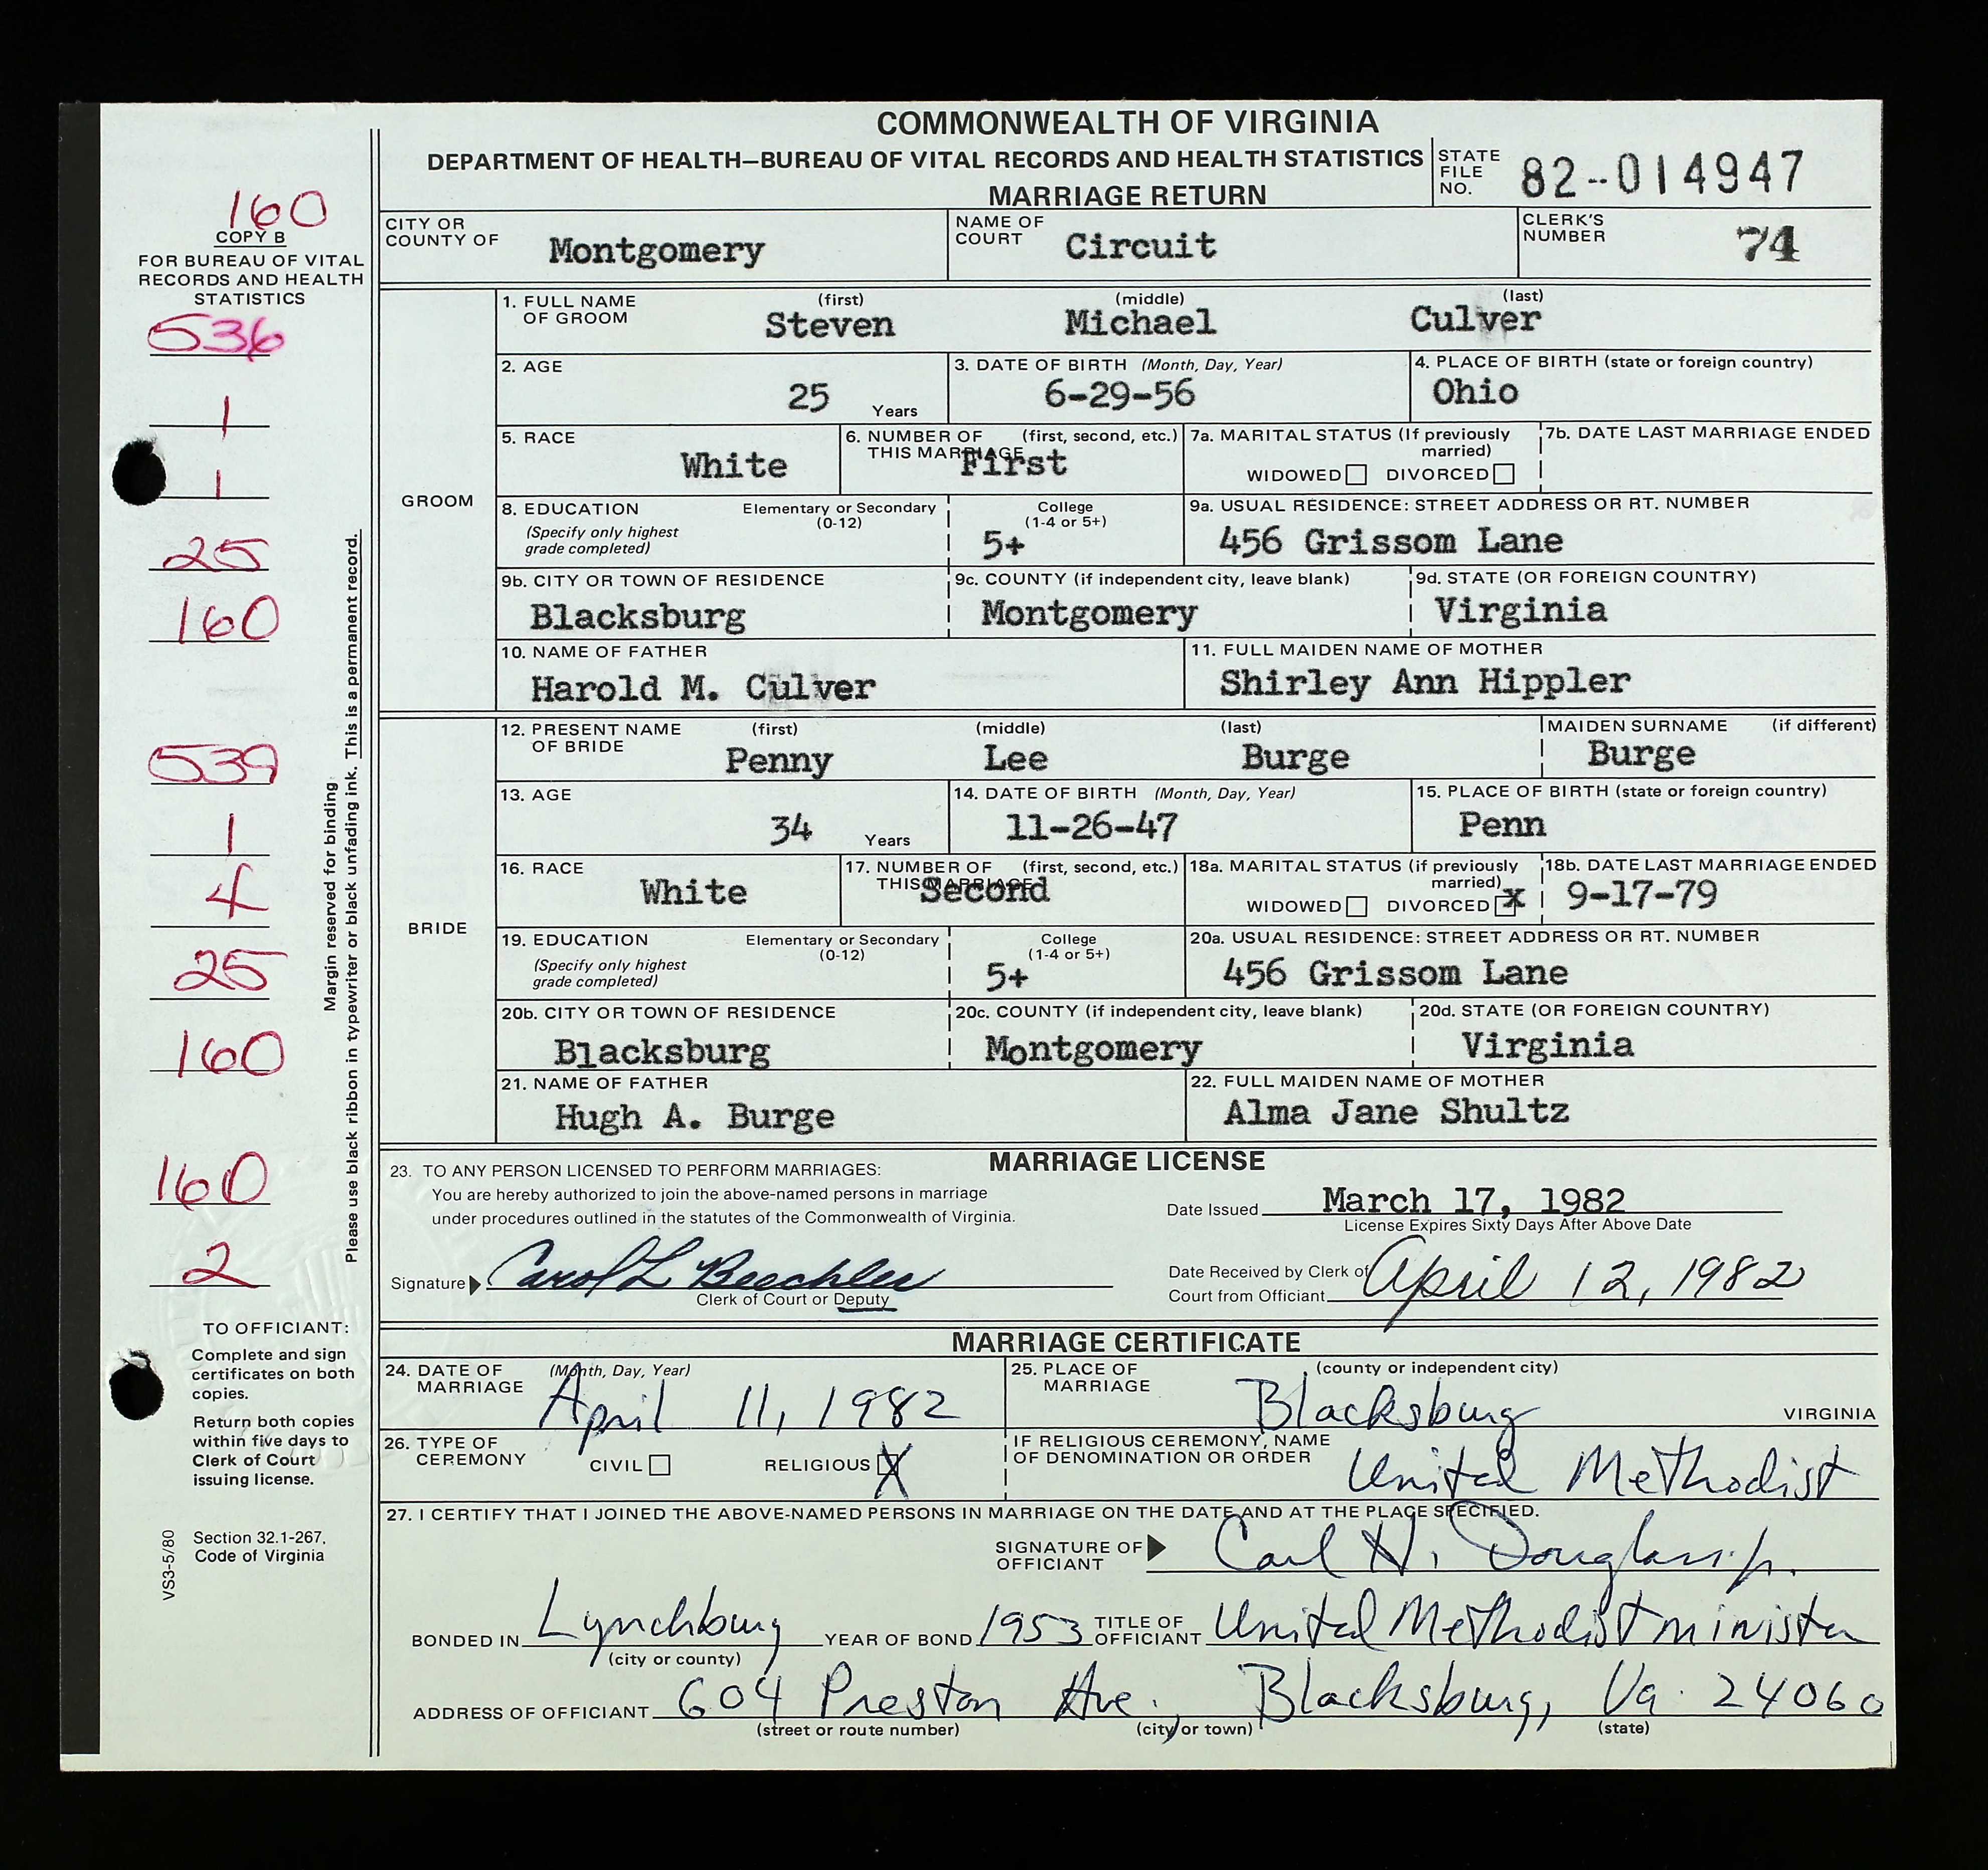 COMMONWEALTH OF VIRGINIA
DEPARTMENT OF HEALTH—BUREAU OF VITAL RECORDS AND HEALTH STATISTICS
MARRIAGE RETURN
STATE FILE NO. 82--014947
CITY OR COUNTY OF Montgomery
NAME OF COURT Circuit
CLERK'S NUMBER 74
160
COPY B
FOR BUREAU OF VITAL
RECORDS AND HEALTH
STATISTICS
536
1
1
25
160
539
1
4
25
160
160
2
Margin reserved for binding
Please use black ribbon in typewriter or black unfading ink. This is a permanent record.
TO OFFICIANT:
Complete and sign
certificates on both
copies.
Return both copies
within five days to
Clerk of Court
issuing license.
Section 32.1-267,
Code of Virginia
VS3-5/80
GROOM
1. FULL NAME OF GROOM (first) Steven (middle) Michael (last) Culver
2. AGE 25 Years
3. DATE OF BIRTH (Month, Day, Year) 6-29-56
4. PLACE OF BIRTH (state or foreign country) Ohio
5. RACE White
6. NUMBER OF THIS MARRIAGE (first, second, etc.) First
7a. MARITAL STATUS (If previously married) WIDOWED DIVORCED
7b. DATE LAST MARRIAGE ENDED
8. EDUCATION (Specify only highest grade completed) Elementary or Secondary (0-12) College (1-4 or 5+) 5+
9a. USUAL RESIDENCE: STREET ADDRESS OR RT. NUMBER 456 Grissom Lane
9b. CITY OR TOWN OF RESIDENCE Blacksburg
9c. COUNTY (if independent city, leave blank) Montgomery
9d. STATE (OR FOREIGN COUNTRY) Virginia
10. NAME OF FATHER Harold M. Culver
11. FULL MAIDEN NAME OF MOTHER Shirley Ann Hippler
BRIDE
12. PRESENT NAME OF BRIDE (first) Penny (middle) Lee (last) Burge
MAIDEN SURNAME (if different) Burge
13. AGE 34 Years
14. DATE OF BIRTH (Month, Day, Year) 11-26-47
15. PLACE OF BIRTH (state or foreign country) Penn
16. RACE White
17. NUMBER OF THIS MARRIAGE (first, second, etc.) Second
18a. MARITAL STATUS (if previously married) WIDOWED DIVORCED x
18b. DATE LAST MARRIAGE ENDED 9-17-79
19. EDUCATION (Specify only highest grade completed) Elementary or Secondary (0-12) College (1-4 or 5+) 5+
20a. USUAL RESIDENCE: STREET ADDRESS OR RT. NUMBER 456 Grissom Lane
20b. CITY OR TOWN OF RESIDENCE Blacksburg
20c. COUNTY (if independent city, leave blank) Montgomery
20d. STATE (OR FOREIGN COUNTRY) Virginia
21. NAME OF FATHER Hugh A. Burge
22. FULL MAIDEN NAME OF MOTHER Alma Jane Shultz
MARRIAGE LICENSE
23. TO ANY PERSON LICENSED TO PERFORM MARRIAGES:
You are hereby authorized to join the above-named persons in marriage
under procedures outlined in the statutes of the Commonwealth of Virginia.
Date Issued March 17, 1982
License Expires Sixty Days After Above Date
Signature Carol L Beechler
Clerk of Court or Deputy
Date Received by Clerk of Court from Officiant April 12, 1982
MARRIAGE CERTIFICATE
24. DATE OF MARRIAGE (Month, Day, Year) April 11, 1982
25. PLACE OF MARRIAGE (county or independent city) Blacksburg VIRGINIA
26. TYPE OF CEREMONY CIVIL RELIGIOUS X
IF RELIGIOUS CEREMONY, NAME OF DENOMINATION OR ORDER United Methodist
27. I CERTIFY THAT I JOINED THE ABOVE-NAMED PERSONS IN MARRIAGE ON THE DATE AND AT THE PLACE SPECIFIED.
SIGNATURE OF OFFICIANT Carl H. Douglass, Jr.
BONDED IN Lynchburg (city or county) YEAR OF BOND 1953 TITLE OF OFFICIANT United Methodist minister
ADDRESS OF OFFICIANT 604 Preston Ave., Blacksburg, Va. 24060
(street or route number) (city or town) (state)